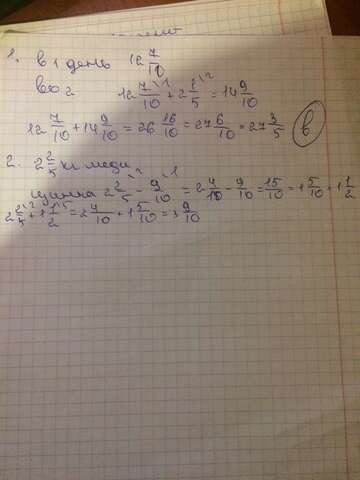 1. в 1 день 12 7/10
во 2 12 7/10 + 2 1/5 = 14 9/10
12 7/10 + 14 9/10 = 26 16/10 = 27 6/10 = 27 3/5 в
2. 2 2/5 кг меди
цинка 2 2/5 - 9/10 = 2 4/10 - 9/10 = 15/10 = 1 5/10 = 1 1/2
2 2/5 + 1 1/2 = 2 4/10 + 1 5/10 = 3 9/10